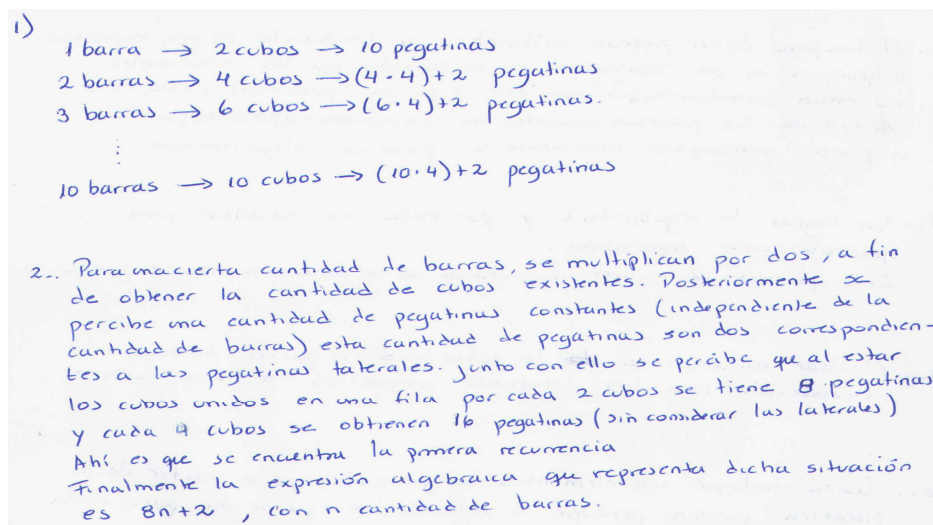 1)
1 barra → 2 cubos → 10 pegatinas
2 barras → 4 cubos → (4·4)+2 pegatinas
3 barras → 6 cubos → (6·4)+2 pegatinas.
⋮
10 barras → 10 cubos → (10·4)+2 pegatinas
2.- Para una cierta cantidad de barras, se multiplican por dos, a fin
de obtener la cantidad de cubos existentes. Posteriormente se
percibe una cantidad de pegatinas constantes (independiente de la
cantidad de barras) esta cantidad de pegatinas son dos correspondien-
tes a las pegatinas laterales. junto con ello se percibe que al estar
los cubos unidos en una fila por cada 2 cubos se tiene 8 pegatinas
y cada 4 cubos se obtienen 16 pegatinas (sin considerar las laterales)
Ahí es que se encuentra la primera recurrencia
Finalmente la expresión algebraica que representa dicha situación
es 8n+2 , con n cantidad de barras.